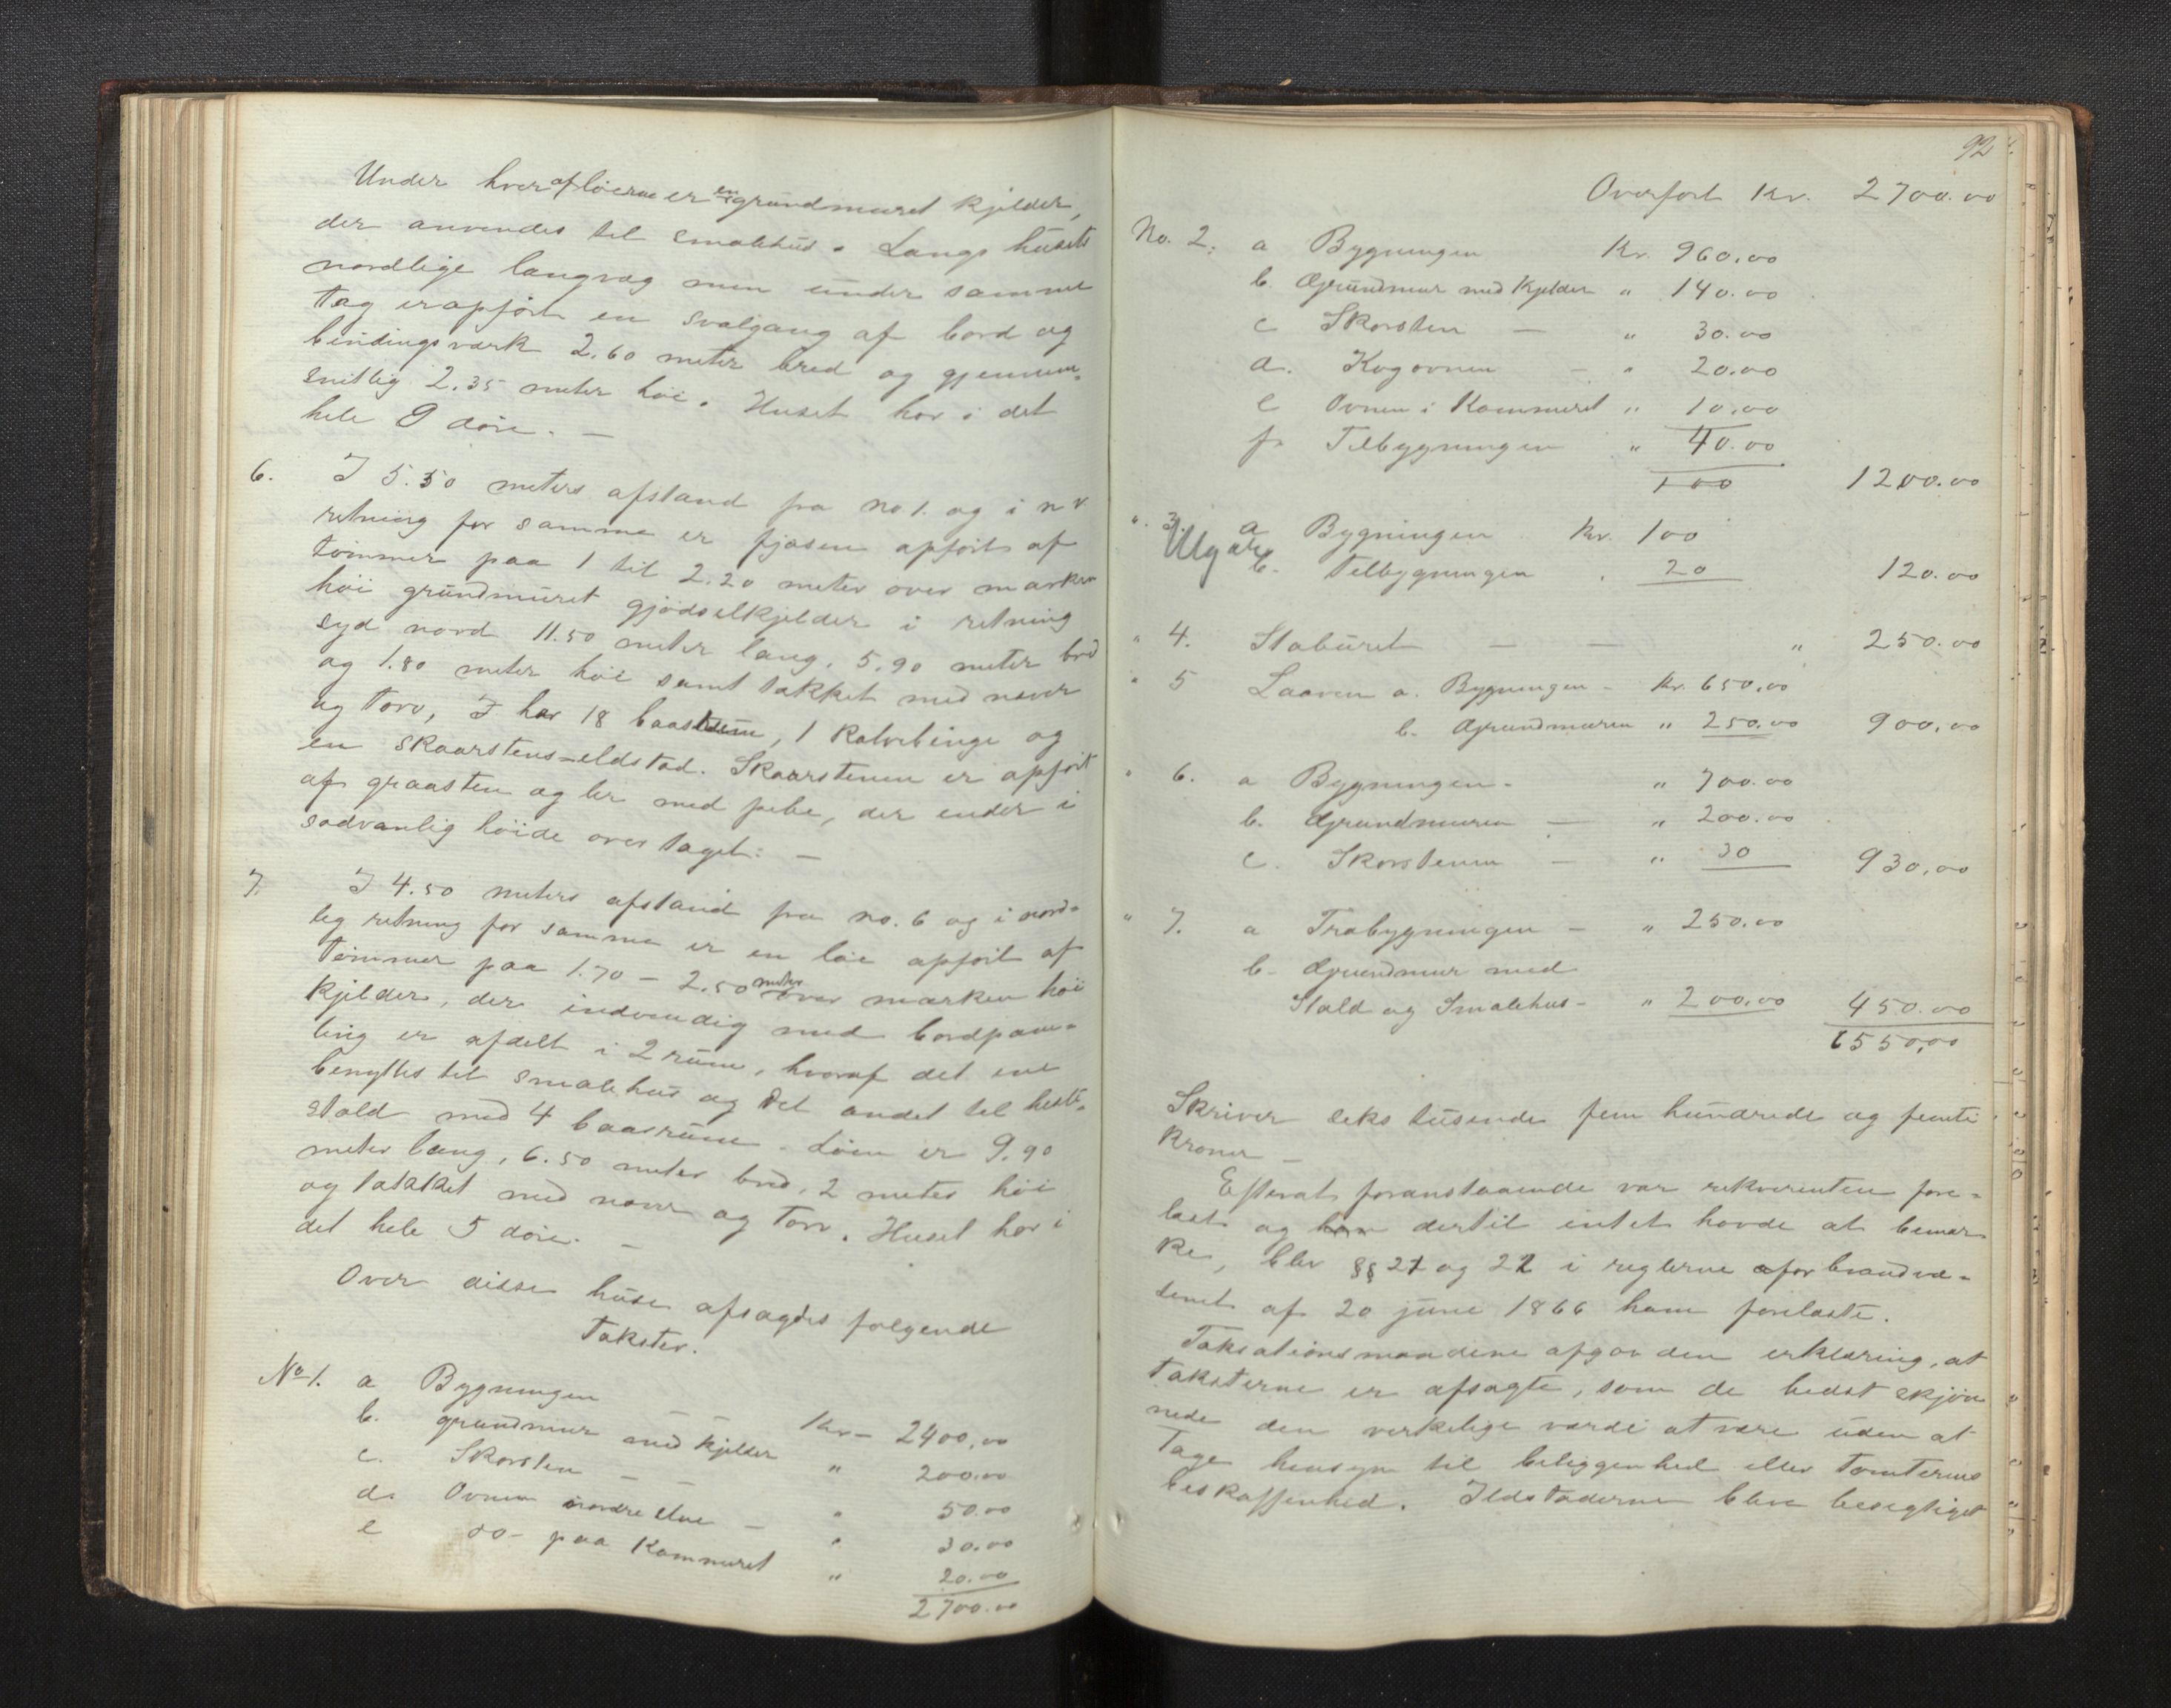 Under hver af löerne er en grundmuret Kjelder,
der anvendes til smalehus. Langs husets
nordlige langvæg men under samme
tag er opfört en svalgang af bord og
bindingsværk 2.60 meter bred og gjennem-
snitlig 2.35 meter höi. Huset har i det
hele 9 döre. —
6. I 5.50 meters afstand fra no 1. og i n v
retning for samme er fjøsen opfört af
tömmer paa 1 til 2.20 meter over marken
höi grundmuret gjödselkjelder i retning
syd nord 11.50 meter lang, 5.90 meter bred
og 1.80 meter höi samt tækket med næver
og torv, I har 18 baasrum, 1 Kalvebinge og
en skaarstens-eldsted. Skaarstenen er opfört
af graasten og ler med pibe, der ender i
sædvanlig höide over taget: —
7. I 4.50 meters afstand fra no. 6 og i nord-
lig retning for samme er en löe opfört af
tömmer paa 1.70 – 2.50 meter over marken höi
Kjelder, der indvendig med bordpane-
ling er afdelt i 2 rum, hvoraf det ene
benyttes til smalehus og det andet til heste-
stald med 4 baasrum. Löen er 9.90
meter lang, 6.50 meter bred, 2 meter höi
og tækket med næver og torv. Huset har i
det hele 5 döre. —
Over disse huse afsagdes følgende
Takster.
No 1. a Bygningen Kr – 2400,00
b. grundmur med Kjelder " 200.00
c. Skorsten — — " 50.00
d. Ovnen nordre stue — " 30.00
e do – paa Kammeret " 20.00
2700.00
92
Overfört Kr. 2700.00
No. 2. a Bygningen Kr. 960.00
b. Grundmur med Kjelder " 140.00
c Skorsten — " 30.00
d. Kogovnen — " 20.00
e Ovnen i Kammeret " 10.00
f. Tilbygningen " 40.00
100 1200.00
" 3. a Bygningen Kr. 100
Ulgat b. Tilbygningen . 20 120.00
" 4. Staburet — — " 250.00
" 5 Laaven a. Bygningen – Kr. 650,00
b. Grundmuren " 250.00 900,00
" 6. a Bygningen – " 700.00
b. Grundmuren — " 200.00
c. Skorstenen — " 30 930,00
" 7. a Træbygningen – " 250.00
b. Grundmur med
Stald og Smalehus – " 200,00 450.00
6550,00
Skriver seks tusende fem hundrede og femti
Kroner —
Efterat foranstaaende var rekvirenten fore-
læst og han dertil intet havde at bemær
ke, blev §§ 21 og 22 i reglerne for brandvæ-
senet af 20 june 1866 ham forelæste.
Taksationsmændene afgav den erklæring, at
taksterne er afsagte, som de bedst skjön
nede den verkelige værdi at være uden at
tage hensyn til beliggenhed eller tomternes
beskaffenhed. Ildstederne blev besigtiget